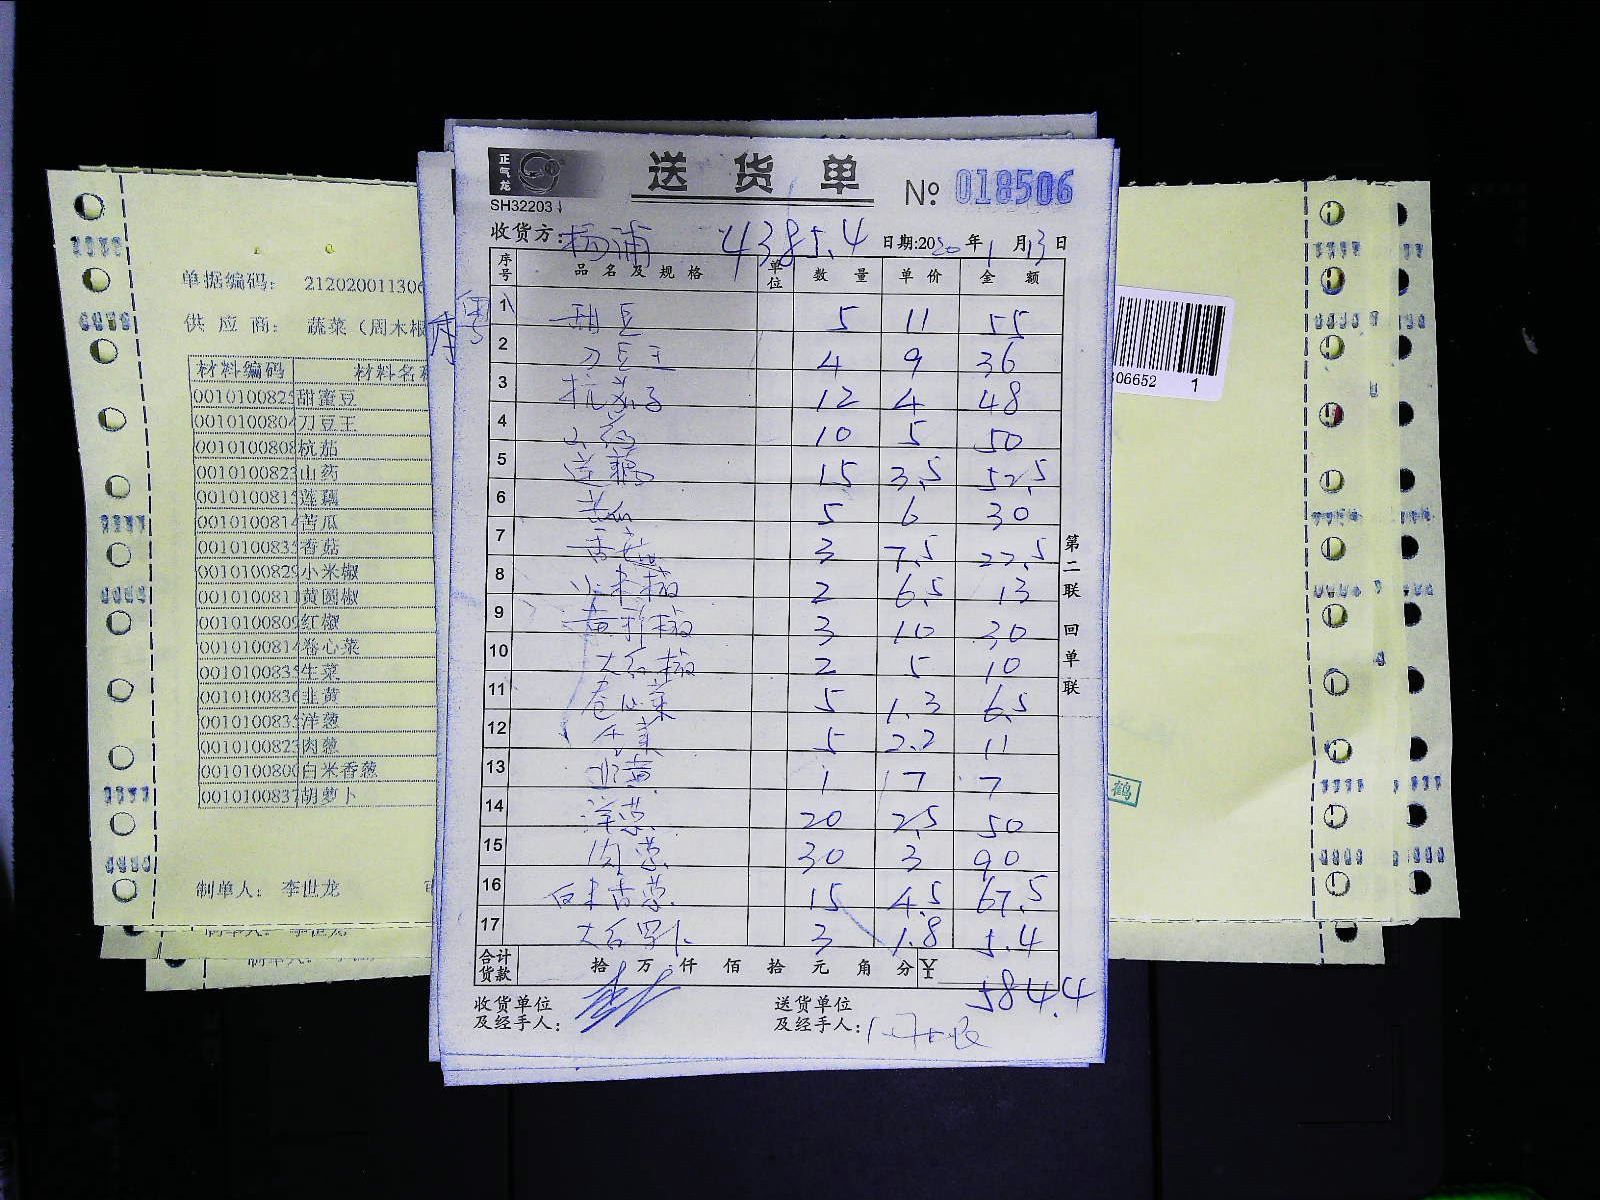 正气龙
SH32203
送货单
№ 018506
收货方: 杨浦 4385.4 日期:2020年1月13日
序号 品名及规格 单位 数量 单价 金额
1 甜豆 5 11 55
2 刀豆王 4 9 36
3 杭茄子 12 4 48
4 山药 10 5 50
5 莲藕 15 3.5 52.5
6 苦瓜 5 6 30
7 香菇 3 7.5 22.5
8 小米椒 2 6.5 13
9 黄椒 3 10 30
10 大红椒 2 5 10
11 卷心菜 5 1.3 6.5
12 生菜 5 2.2 11
13 韭黄 1 7 7
14 洋葱 20 2.5 50
15 肉葱 30 3 90
16 白米香葱 15 4.5 67.5
17 大红罗卜 3 1.8 5.4
合计货款 拾 万 仟 佰 拾 元 角 分 ¥ 584.4
收货单位及经手人:
送货单位及经手人:
第二联 回单联
单据编码: 212020011306
供应商: 蔬菜(周木椒
材料编码 材料名称
0010100825 甜蜜豆
0010100804 刀豆王
0010100808 杭茄
0010100823 山药
0010100815 莲藕
0010100814 苦瓜
0010100833 香菇
0010100829 小米椒
0010100811 黄圆椒
0010100809 红椒
0010100814 卷心菜
0010100835 生菜
0010100836 韭黄
0010100833 洋葱
0010100823 肉葱
0010100800 白米香葱
0010100837 胡萝卜
制单人: 李世龙
制单人: 李世龙
制单人:
306652 1
鹤